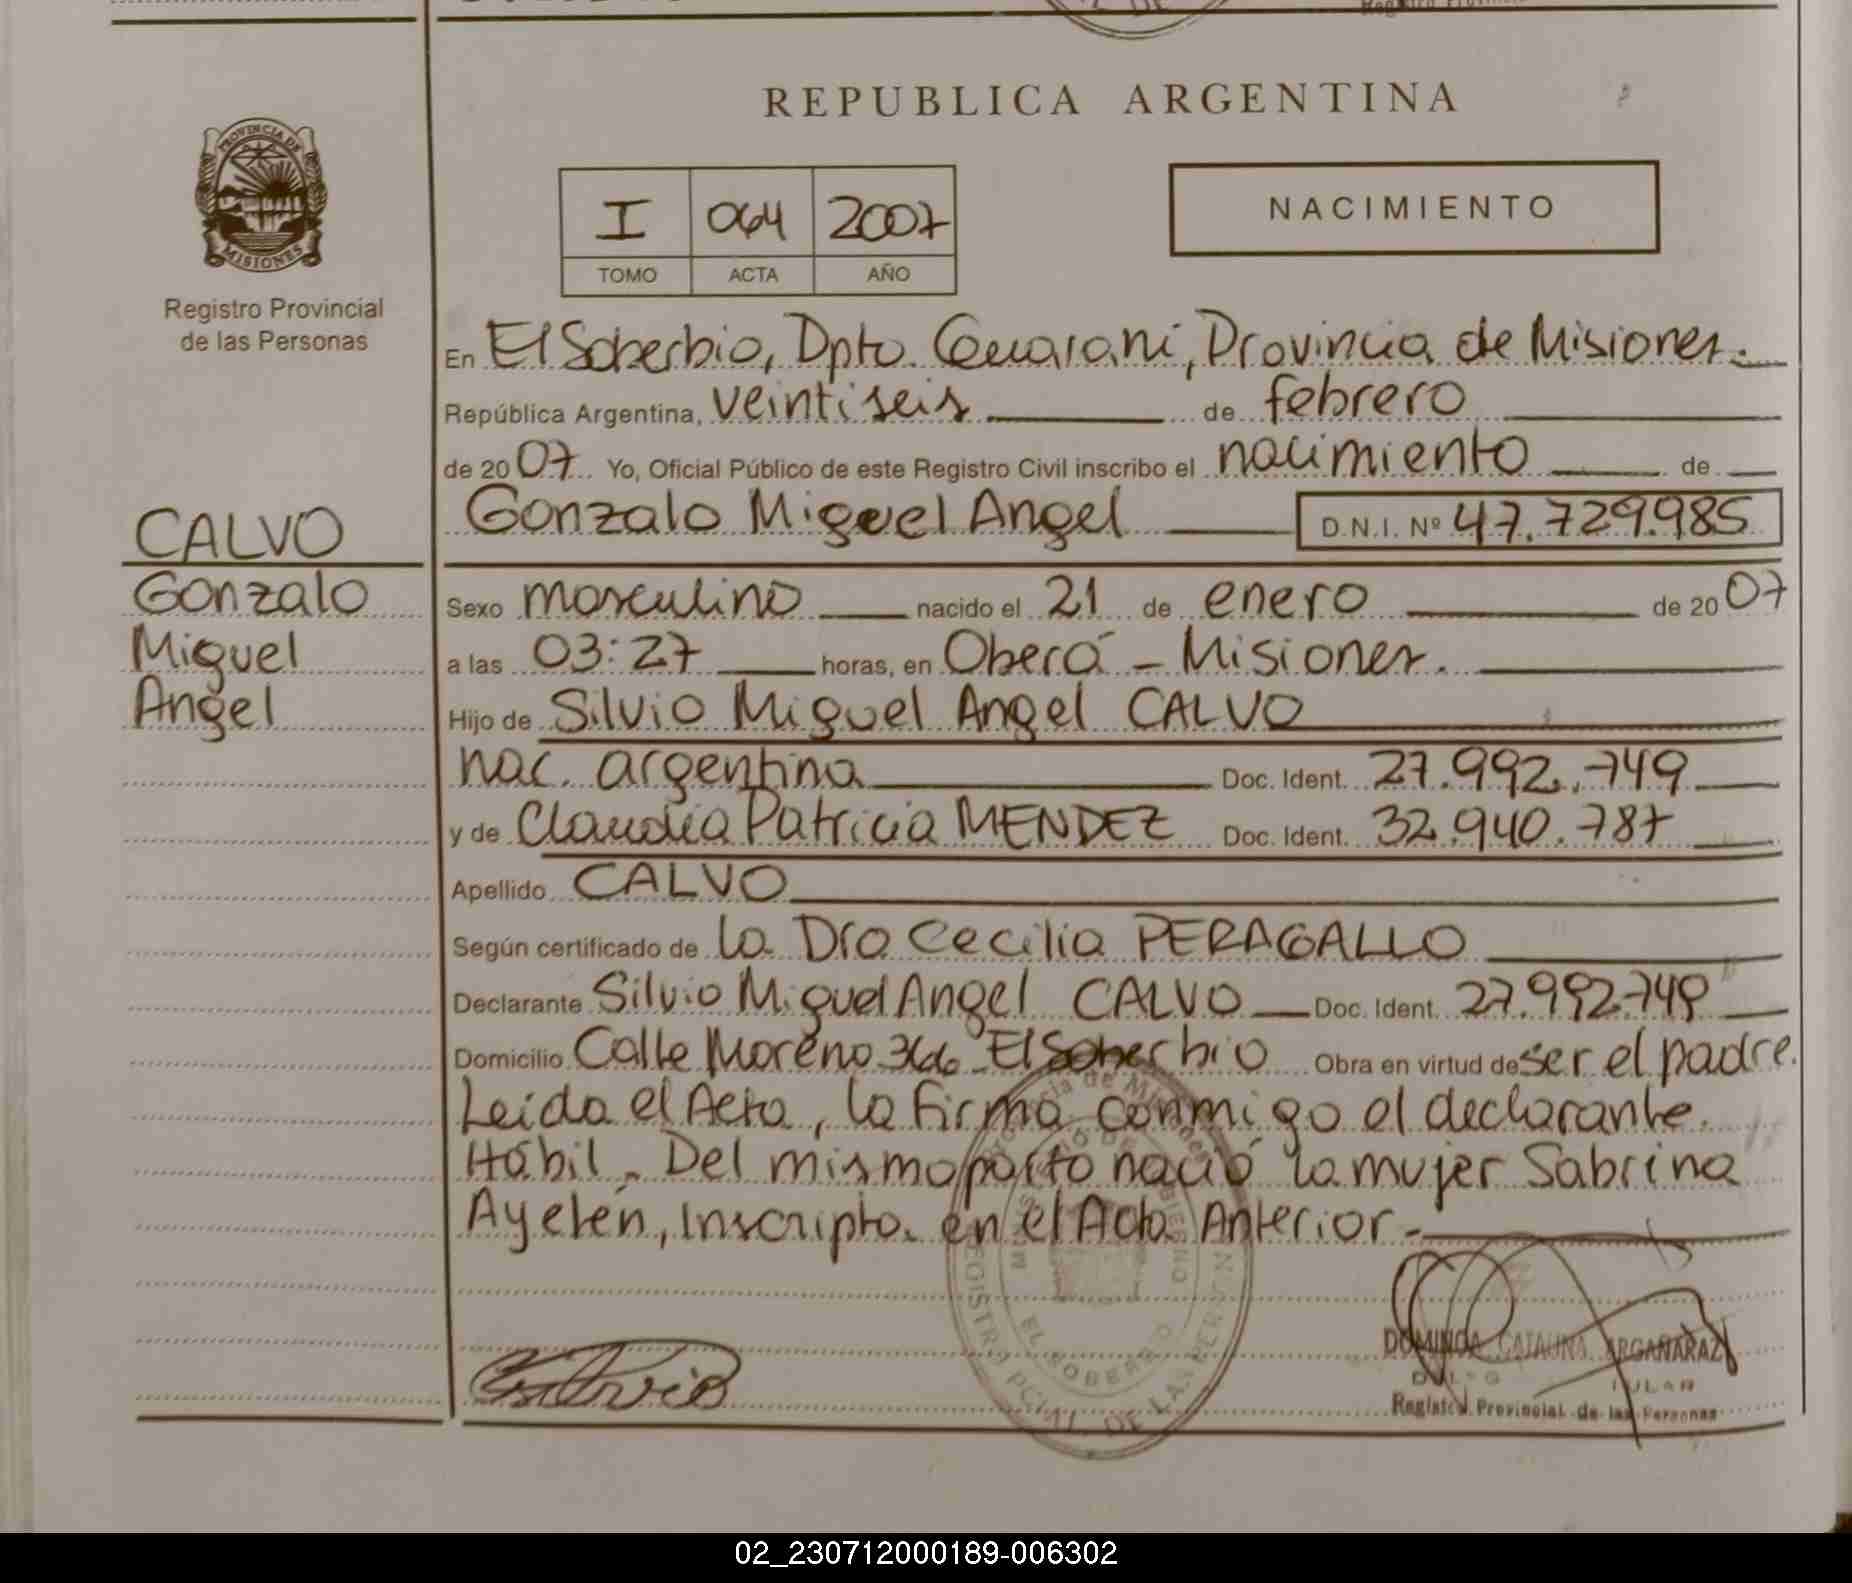 REPUBLICA ARGENTINA
PROVINCIA DE
MISIONES
Registro Provincial
de las Personas
I 064 2007
TOMO ACTA AÑO
NACIMIENTO
En El Soberbio, Dpto. Guaraní, Provincia de Misiones.
República Argentina, veintiseis de febrero
de 2007 Yo, Oficial Público de este Registro Civil inscribo el nacimiento de
Gonzalo Miguel Angel D.N.I. Nº 47.729.985
CALVO
Gonzalo
Miguel
Angel
Sexo masculino nacido el 21 de enero de 2007
a las 03:27 horas, en Oberá - Misiones.
Hijo de Silvio Miguel Angel CALVO
nac. argentina Doc. Ident. 27.992.749
y de Claudia Patricia MENDEZ Doc. Ident. 32.940.787
Apellido CALVO
Según certificado de la Dra Cecilia PERAGALLO
Declarante Silvio Miguel Angel CALVO Doc. Ident. 27.992.749
Domicilio Calle Moreno 366 - El Soberbio Obra en virtud de ser el padre.
Leída el Acta, la firma conmigo el declarante
Hábil. Del mismo parto nació la mujer Sabrina
Ayelén, Inscripta en el Acta Anterior.-
EL SOBERBIO
DE LAS PERSONAS
DOMINGA CATALINA ARGAÑARAZ
Registro Provincial de las Personas
02_230712000189-006302